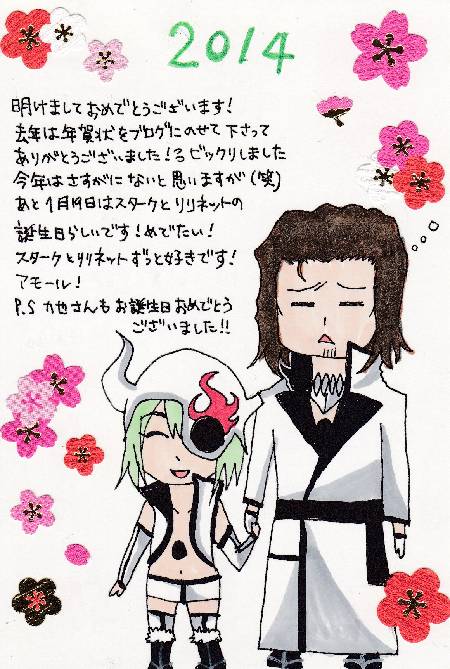 2014
明けましておめでとうございます!
去年は年賀状をブログにのせて下さって
ありがとうございました!ろビックリしました
今年はさすがにないと思いますが(笑)
あと1月19日はスタークとリリネットの
誕生日らしいです!めでたい!
スタークとリリネットずっと好きです!
アモール!
P.S カ也さんもお誕生日おめでとう
ございました!!